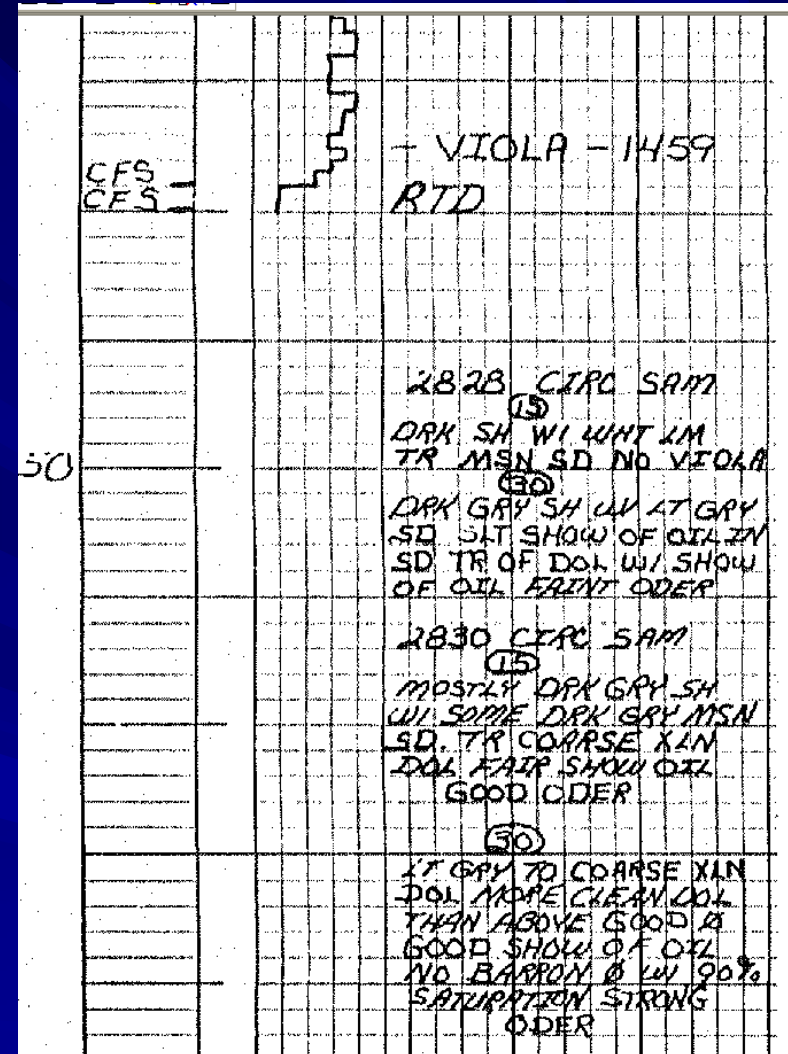 - VIOLA - 1459
CFS
CFS
RTD
2828 CIRC SAM
15
DRK SH W/ WHT LM
TR MSN SD NO VIOLA
50
30
DRK GRY SH W/ LT GRY
SD SLT SHOW OF OIL IN
SD TR OF DOL W/ SHOW
OF OIL FAINT ODER
2830 CIRC SAM
15
MOSTLY DRK GRY SH
W/ SOME DRK GRY MSN
SD. TR COARSE XLN
DOL FAIR SHOW OIL
GOOD ODER
30
LT GRY TO COARSE XLN
DOL MORE CLEAN DOL
THAN ABOVE GOOD Ø
GOOD SHOW OF OIL
NO BARRON Ø W/ 90%
SATURATION STRONG
ODER